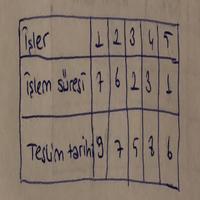 İşler 1 2 3 4 5
İşlem süresi 7 6 2 3 1
Teslim tarihi 9 7 5 8 6